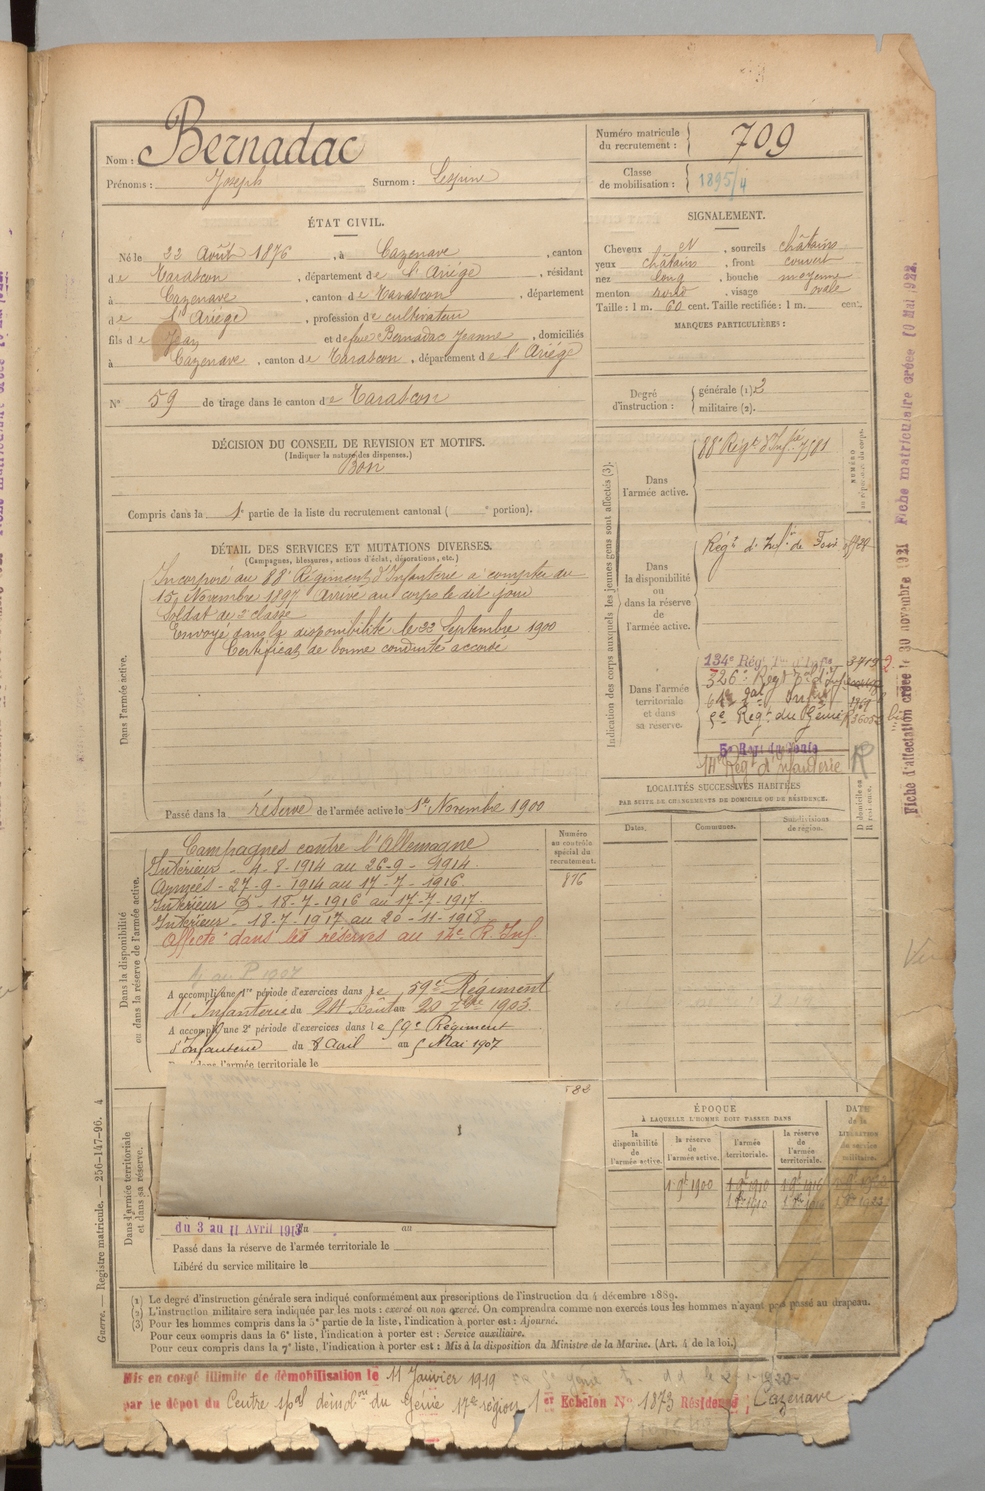 Nom : Bernadac
Prénoms : Joseph Surnom : Lespine
Numéro matricule du recrutement : 709
Classe de mobilisation : 1895/4
ÉTAT CIVIL.
Né le 22 Août 1876, à Cazenave, canton
de Tarascon, département de l'Ariége, résidant
à Cazenave, canton de Tarascon, département
de l'Ariège, profession de cultivateur
fils de Jean et de feue Bernadac Jeanne, domiciliés
à Cazenave, canton de Tarascon, département de l'Ariége
N° 59 de tirage dans le canton de Tarascon
SIGNALEMENT.
Cheveux et sourcils châtains
yeux châtains, front couvert
nez long, bouche moyenne
menton rond, visage ovale
Taille : 1 m. 60 cent. Taille rectifiée : 1 m. cent.
MARQUES PARTICULIÈRES :
Degré d'instruction : générale (1) 2
militaire (2).
DÉCISION DU CONSEIL DE REVISION ET MOTIFS.
(Indiquer la nature des dispenses.)
Bon
Compris dans la 1e partie de la liste du recrutement cantonal ( e portion).
DÉTAIL DES SERVICES ET MUTATIONS DIVERSES.
(Campagnes, blessures, actions d'éclat, décorations, etc.)
Dans l'armée active.
Incorporé au 88e Régiment d'Infanterie à compter du
15 Novembre 1897 Arrivé au corps le dit jour
Soldat de 2e classe
Envoyé dans la disponibilité le 22 Septembre 1900
Certificat de bonne conduite accordé
Passé dans la réserve de l'armée active le 1er Novembre 1900
Indication des corps auxquels les jeunes gens sont affectés (3).
NUMÉRO
Dans l'armée active.
88e Régt d'Infie 7581
Dans la disponibilité ou dans la réserve de l'armée active.
Régt d'Infie de Foix
Dans l'armée territoriale et dans sa réserve.
134e Régt Ter d'Inf
5e Régt du Génie
5e Régt du Génie
14e Régt d'Infanterie R
LOCALITÉS SUCCESSIVES HABITÉES
PAR SUITE DE CHANGEMENTS DE DOMICILE OU DE RÉSIDENCE.
Dates. Communes. Subdivisions de région. D domicile ou R résidence.
Dans la disponibilité ou dans la réserve de l'armée active.
Numéro au contrôle spécial du recrutement.
876
Campagnes contre l'Allemagne
Intérieur - 4-8-1914 au 26-9-1914.
Armées - 27-9-1914 au 17-7-1916.
Intérieur D - 18-7-1916 au 17-7-1917.
Intérieur - 18-7-1917 au 20-11-1918
Affecté dans les réserves au 14e R. Inf.
A accompli une 1re période d'exercices dans le 59e Régiment
d'Infanterie du 24 Août au 20 7bre 1903.
A accompli une 2e période d'exercices dans le 59e Régiment
d'Infanterie du 8 Avril au 5 Mai 1907
Passé dans l'armée territoriale le
582
Dans l'armée territoriale et dans sa réserve.
du 3 au 11 Avril 1913 du au
Passé dans la réserve de l'armée territoriale le
Libéré du service militaire le
ÉPOQUE
À LAQUELLE L'HOMME DOIT PASSER DANS
DATE de la LIBÉRATION du service militaire.
la disponibilité de l'armée active. la réserve de l'armée active. l'armée territoriale. la réserve de l'armée territoriale.
1 9bre 1900 1 9bre 1910 1 9bre 1916
(1) Le degré d'instruction générale sera indiqué conformément aux prescriptions de l'instruction du 4 décembre 1889.
(2) L'instruction militaire sera indiquée par les mots : exercé ou non exercé. On comprendra comme non exercés tous les hommes n'ayant pas passé au drapeau.
(3) Pour les hommes compris dans la 5e partie de la liste, l'indication à porter est : Ajourné.
Pour ceux compris dans la 6e liste, l'indication à porter est : Service auxiliaire.
Pour ceux compris dans la 7e liste, l'indication à porter est : Mis à la disposition du Ministre de la Marine. (Art. 4 de la loi.)
Mis en congé illimité de démobilisation le 11 Janvier 1919
par le dépôt du Centre spal démobon du Génie 17e région, 1er Echelon No 1873 Résidence, Cazenave
Guerre. — Registre matricule. — 256-147-96. 4
Fiche d'affectation créée le 30 novembre 1921 Fiche matriculaire créée 10 Mai 1922.